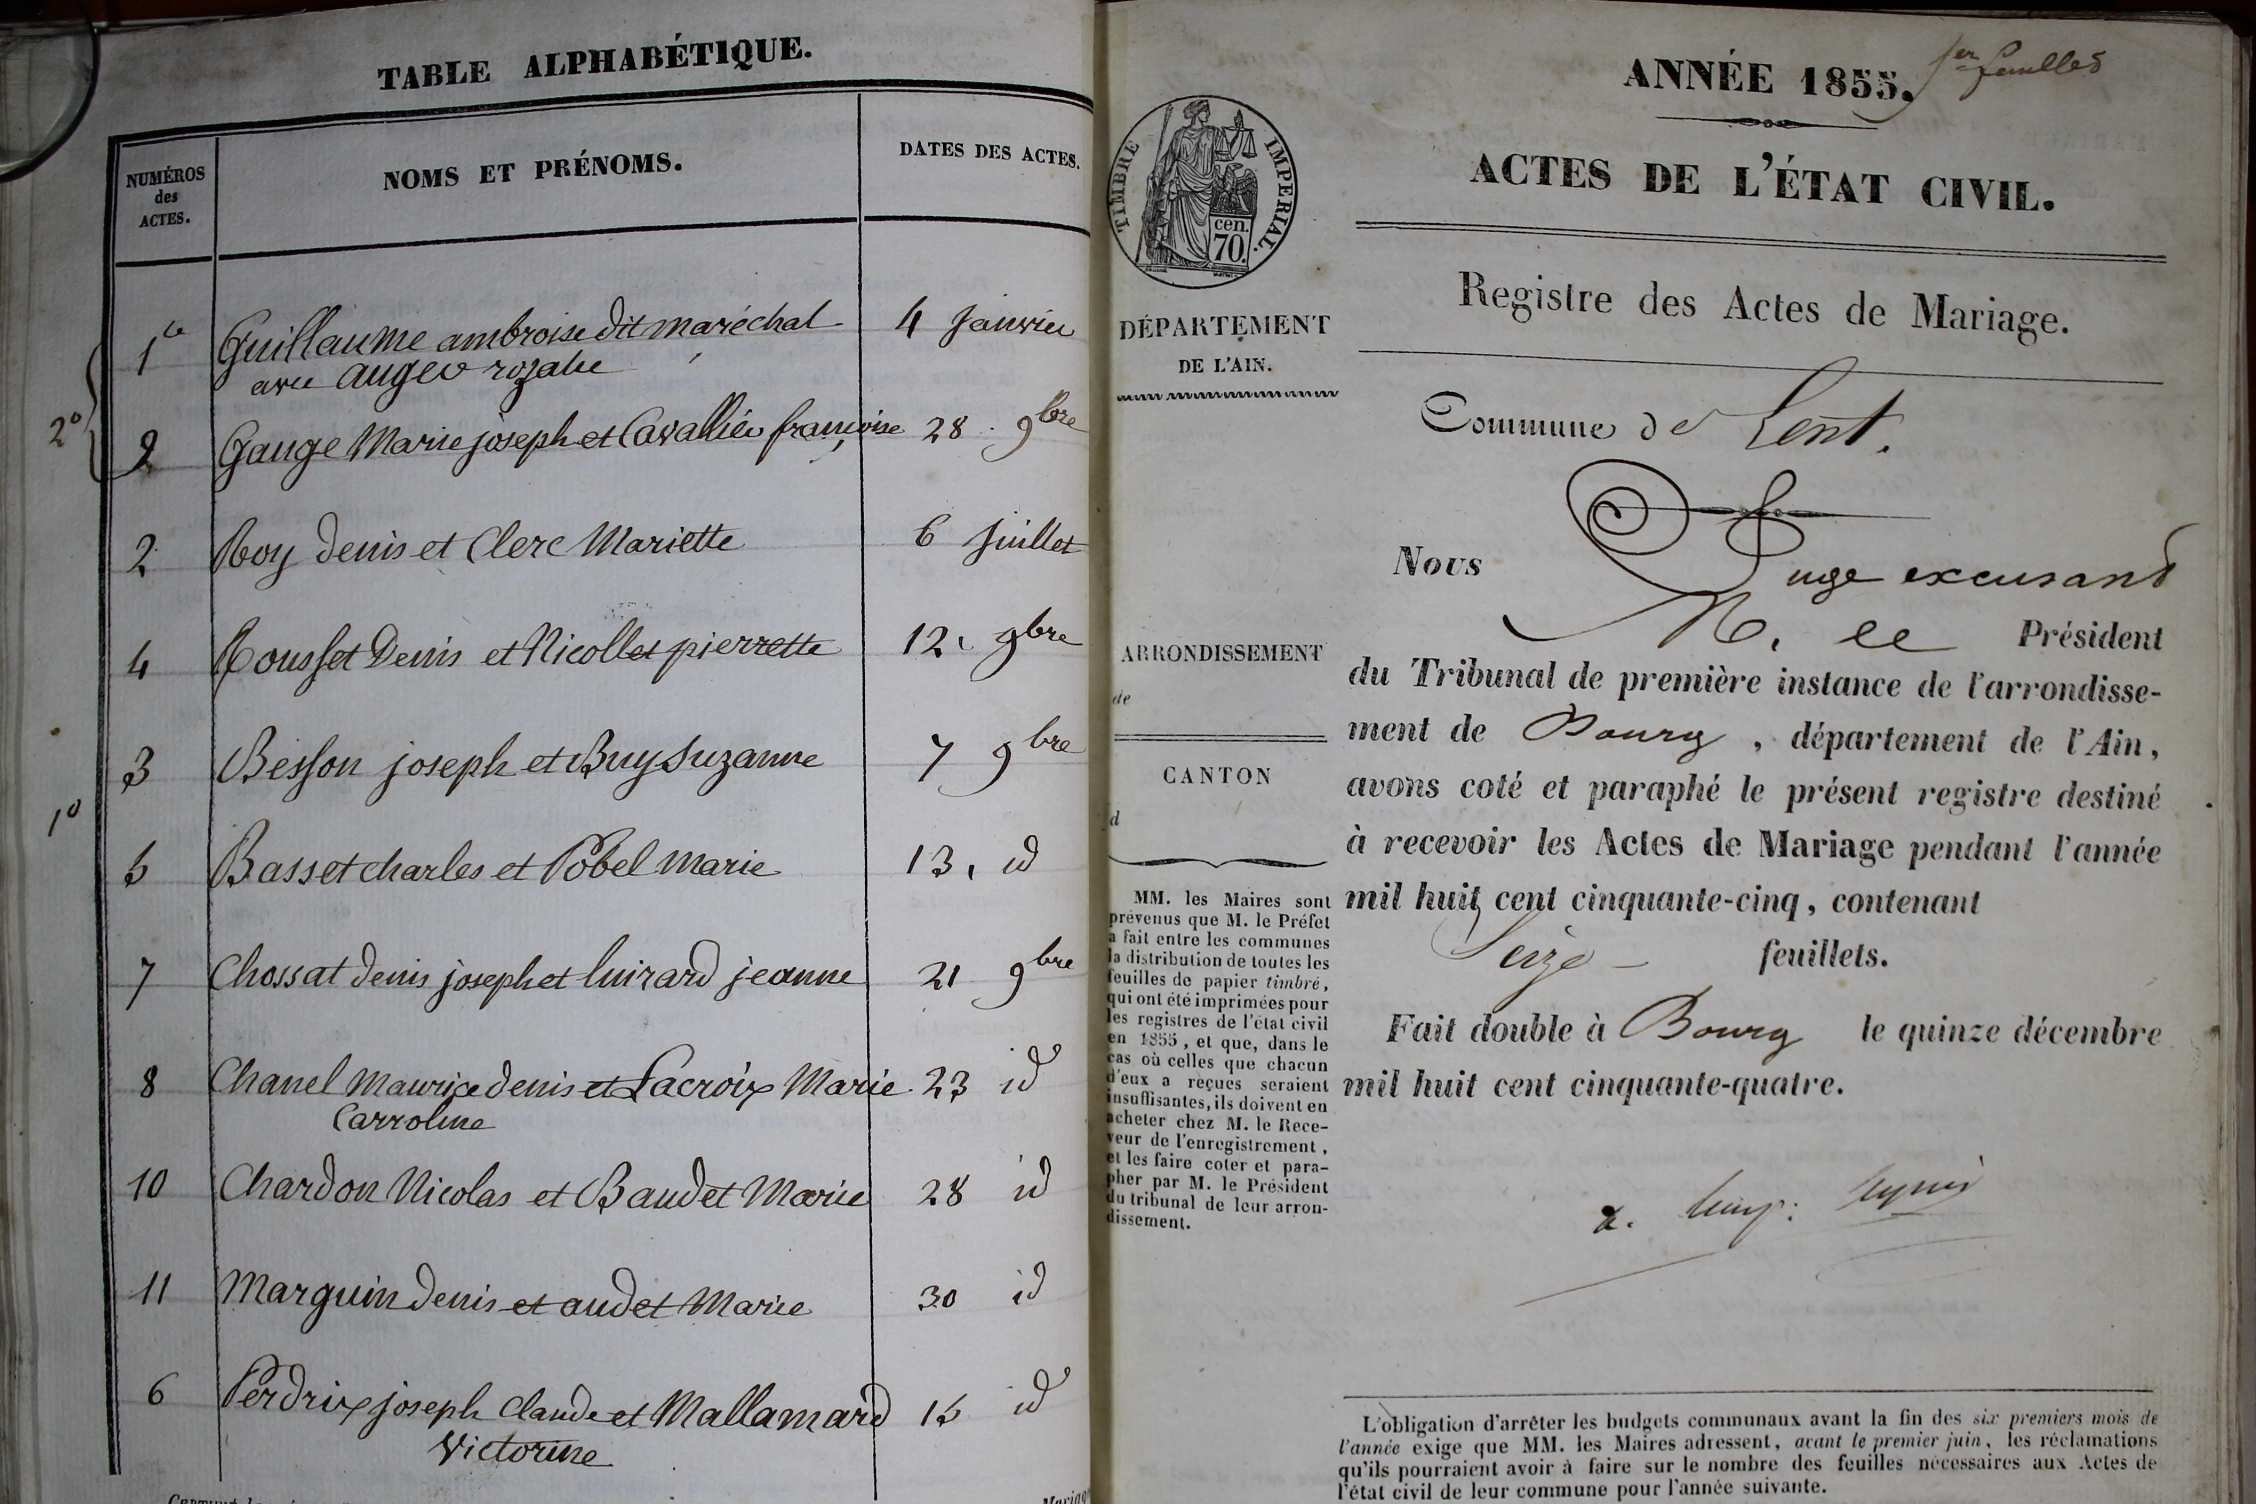 TABLE ALPHABÉTIQUE.
NUMÉROS
des
ACTES.
NOMS ET PRÉNOMS.
DATES DES ACTES.
1er Guillaume ambroise dit maréchal 4 Janvier
avec auger rozalie
2° 9 Gauge Marie joseph et Cavallier françoise 28 9bre
2 Roy denis et Clerc Mariette 6 Juillet
4 Rousset Denis et Nicollet pierrette 12 9bre
3 Besson joseph et Buy Suzanne 7 9bre
1°
5 Basset charles et Pobel Marie 13 id
7 Chossat denis joseph et luirard jeanne 21 9bre
8 Chanel Maurice denis et Lacroix Marie 23 id
Carroline
10 Chardon Nicolas et Baudet Marie 28 id
11 Marguin denis et audet Marie 30 id
6 Perdrix joseph Claude et Mallamard 15 id
Victorine
1er feuillet
ANNÉE 1855.
ACTES DE L'ÉTAT CIVIL.
Registre des Actes de Mariage.
Commune de Lent.
TIMBRE IMPERIAL.
cen.
70.
DÉPARTEMENT
DE L'AIN.
ARRONDISSEMENT
de
CANTON
d
MM. les Maires sont
prévenus que M. le Préfet
a fait entre les communes
la distribution de toutes les
feuilles de papier timbré,
qui ont été imprimées pour
les registres de l'état civil
en 1855, et que, dans le
cas où celles que chacun
d'eux a reçues seraient
insuffisantes, ils doivent en
acheter chez M. le Rece-
veur de l'enregistrement,
et les faire coter et para-
pher par M. le Président
du tribunal de leur arron-
dissement.
Nous Juge excusant
M. le Président
du Tribunal de première instance de l'arrondisse-
ment de Bourg, département de l'Ain,
avons coté et paraphé le présent registre destiné
à recevoir les Actes de Mariage pendant l'année
mil huit cent cinquante-cinq, contenant
Seize feuillets.
Fait double à Bourg le quinze décembre
mil huit cent cinquante-quatre.
L'obligation d'arrêter les budgets communaux avant la fin des six premiers mois de
l'année exige que MM. les Maires adressent, avant le premier juin, les réclamations
qu'ils pourraient avoir à faire sur le nombre des feuilles nécessaires aux Actes de
l'état civil de leur commune pour l'année suivante.